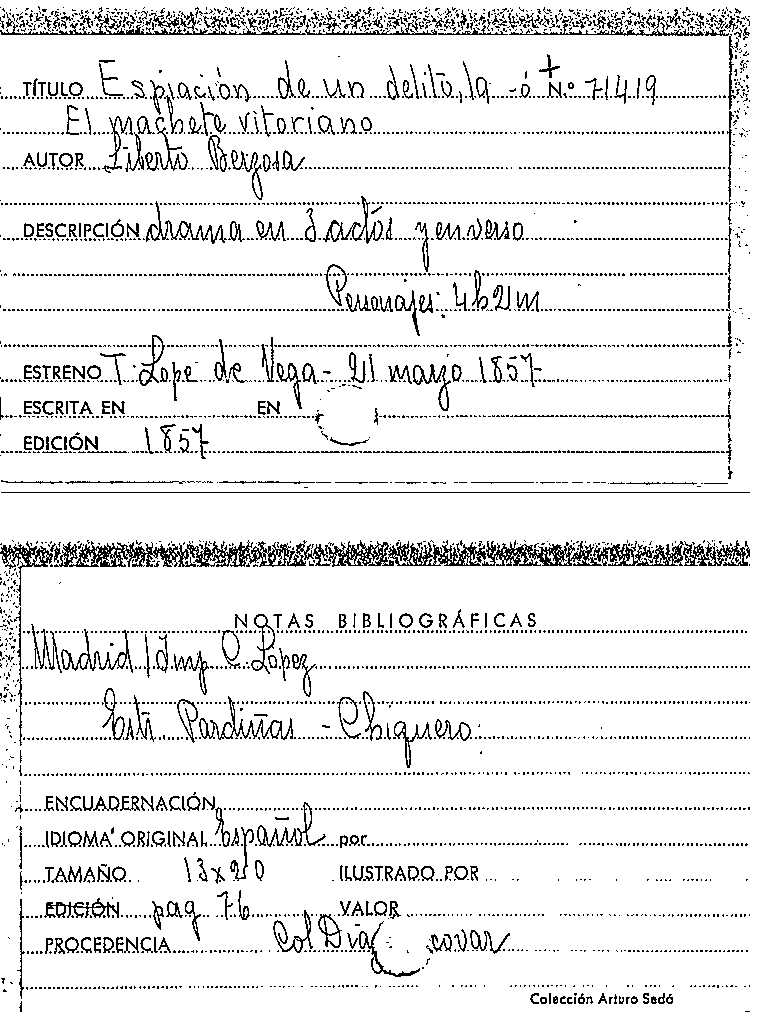 TÍTULO Espiación de un delito, la - ó N.º 71419
El machete vitoriano
AUTOR Liberto Berzosa
DESCRIPCIÓN drama en 3 actos y en verso
Personajes: 4h 21m
ESTRENO T. Lope de Vega - 21 marzo 1857
ESCRITA EN EN
EDICIÓN 1857
NOTAS BIBLIOGRÁFICAS
Madrid / Imp C. López
Estr. Pardiñas - Chiquero
ENCUADERNACIÓN
IDIOMA ORIGINAL Español por
TAMAÑO 13 x 20 ILUSTRADO POR
EDICIÓN pag 76 VALOR
PROCEDENCIA Col Día covar
Colección Arturo Sedó